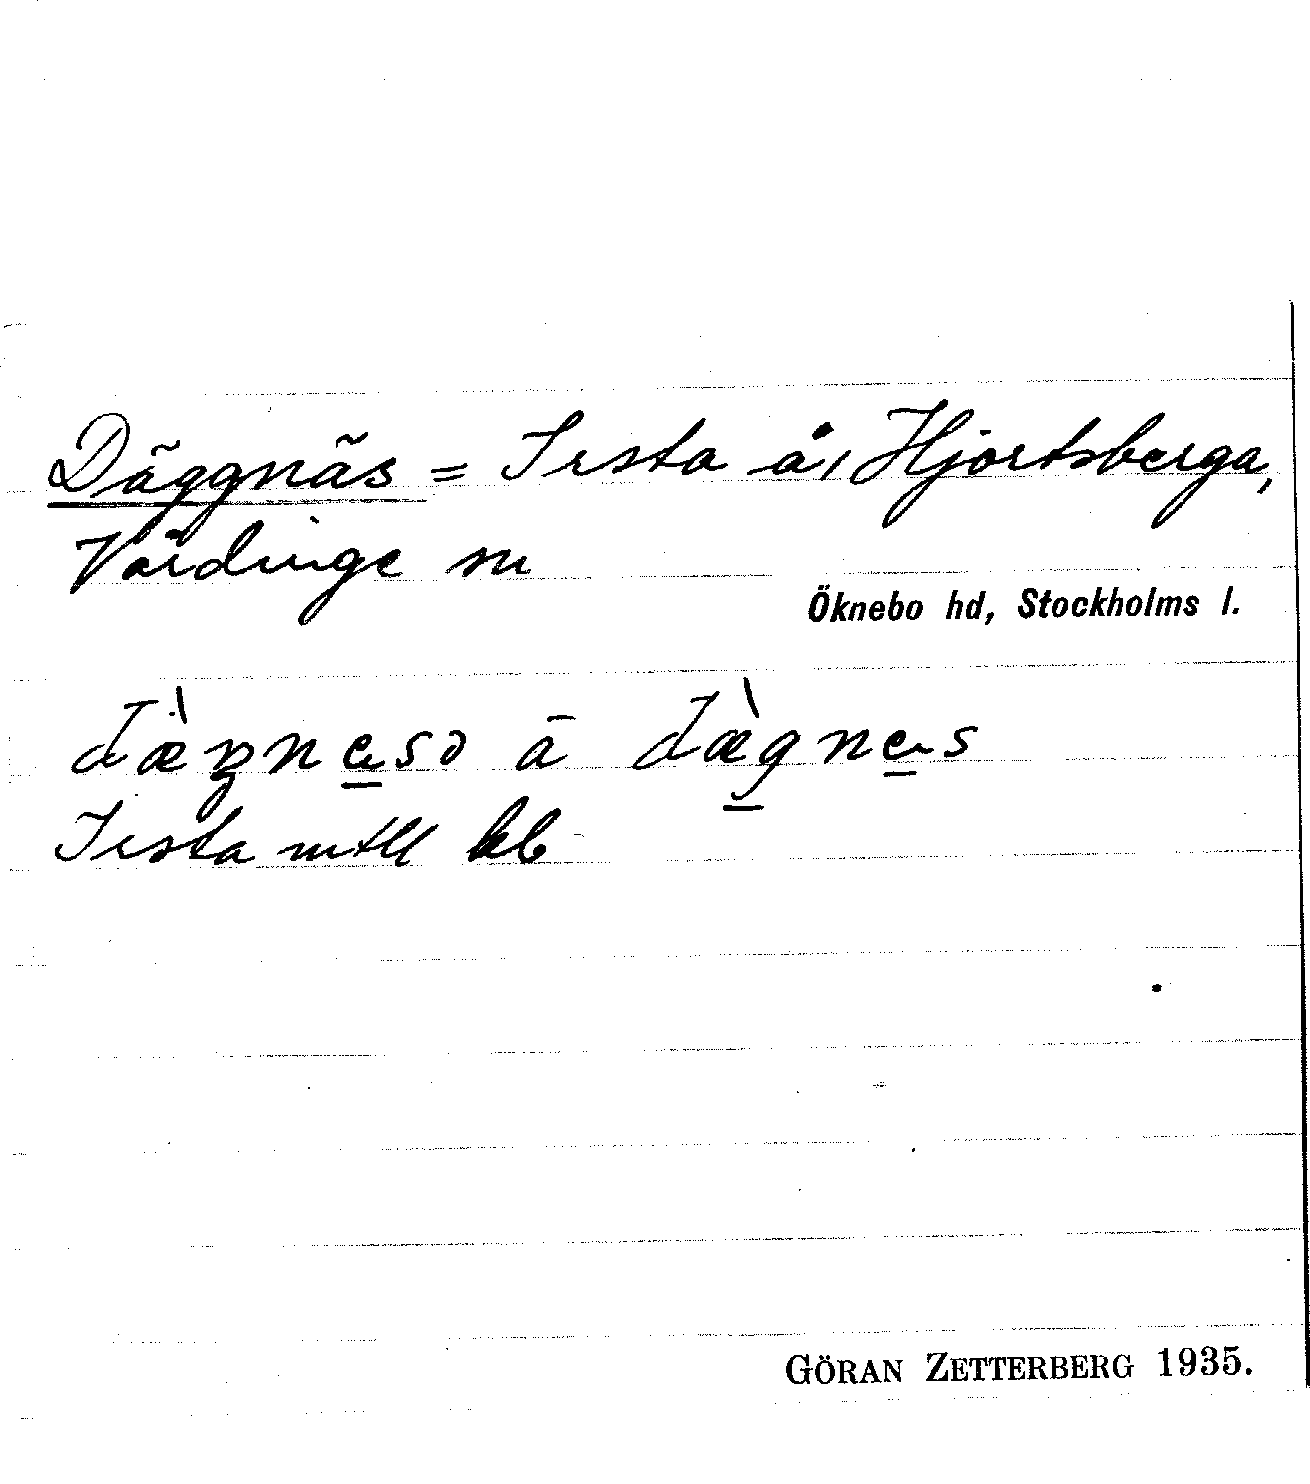 Däggnäs = Irsta å, Hjortsberga,
Vårdinge sn
Öknebo hd, Stockholms l.
dæ̀gnesə ā dæ̀gnes
Irsta mtll kb
GÖRAN ZETTERBERG 1935.